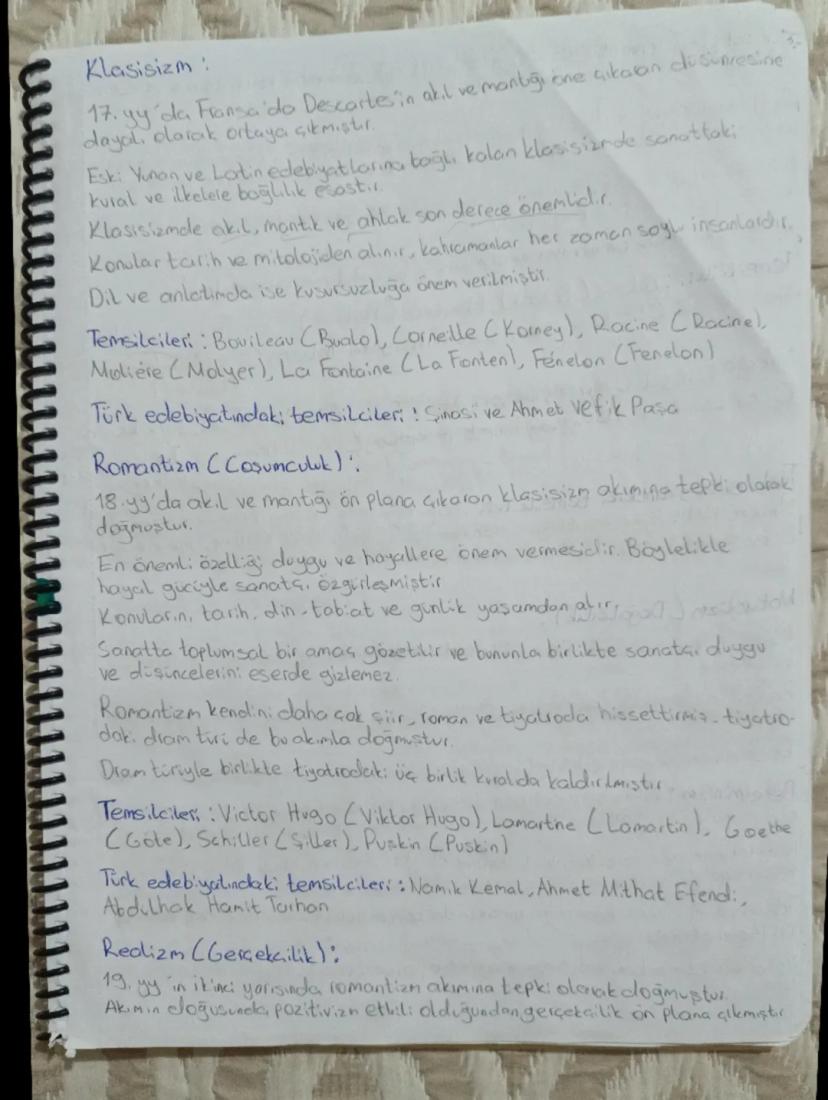 Klasisizm :
17. yy'da Fransa'da Descartes'in akıl ve mantığı öne çıkaran düşüncesine
dayalı olarak ortaya çıkmıştır.
Eski Yunan ve Latin edebiyatlarına bağlı kalan klasisizmde sanattaki
kural ve ilkelere bağlılık esastır.
Klasisizmde akıl, mantık ve ahlak son derece önemlidir.
Konular tarih ve mitolojiden alınır, kahramanlar her zaman soylu insanlardır.
Dil ve anlatımda ise kusursuzluğa önem verilmiştir.
Temsilcileri : Bouileau (Bualo), Corneille (Korney), Racine (Racine),
Moliére (Molyer), La Fontaine (La Fonten), Fénelon (Fenelon)
Türk edebiyatındaki temsilcileri : Şinasi ve Ahmet Vefik Paşa
Romantizm (Coşumculuk) :
18. yy'da akıl ve mantığı ön plana çıkaran klasisizm akımına tepki olarak
doğmuştur.
En önemli özelliği duygu ve hayallere önem vermesidir. Böylelikle
hayal gücüyle sanatçı özgürleşmiştir
Konularını, tarih, din, tabiat ve günlük yaşamdan alır,
Sanatta toplumsal bir amaç gözetilir ve bununla birlikte sanatçı duygu
ve düşüncelerini eserde gizlemez.
Romantizm kendini daha çok şiir, roman ve tiyatroda hissettirmiş, tiyatro-
daki dram türü de bu akımla doğmuştur.
Dram türüyle birlikte tiyatrodaki üç birlik kuralıda kaldırılmıştır
Temsilcileri : Victor Hugo (Viktor Hugo), Lamartine (Lamartin), Goethe
(Göte), Schiller (Şiller), Puşkin (Puşkin)
Türk edebiyatındaki temsilcileri : Namık Kemal, Ahmet Mithat Efendi,
Abdülhak Hamit Tarhan
Realizm (Gerçekçilik) :
19. yy'ın ikinci yarısında romantizm akımına tepki olarak doğmuştur.
Akımın doğusunda pozitivizm etkili olduğundan gerçekçilik ön plana çıkmıştır